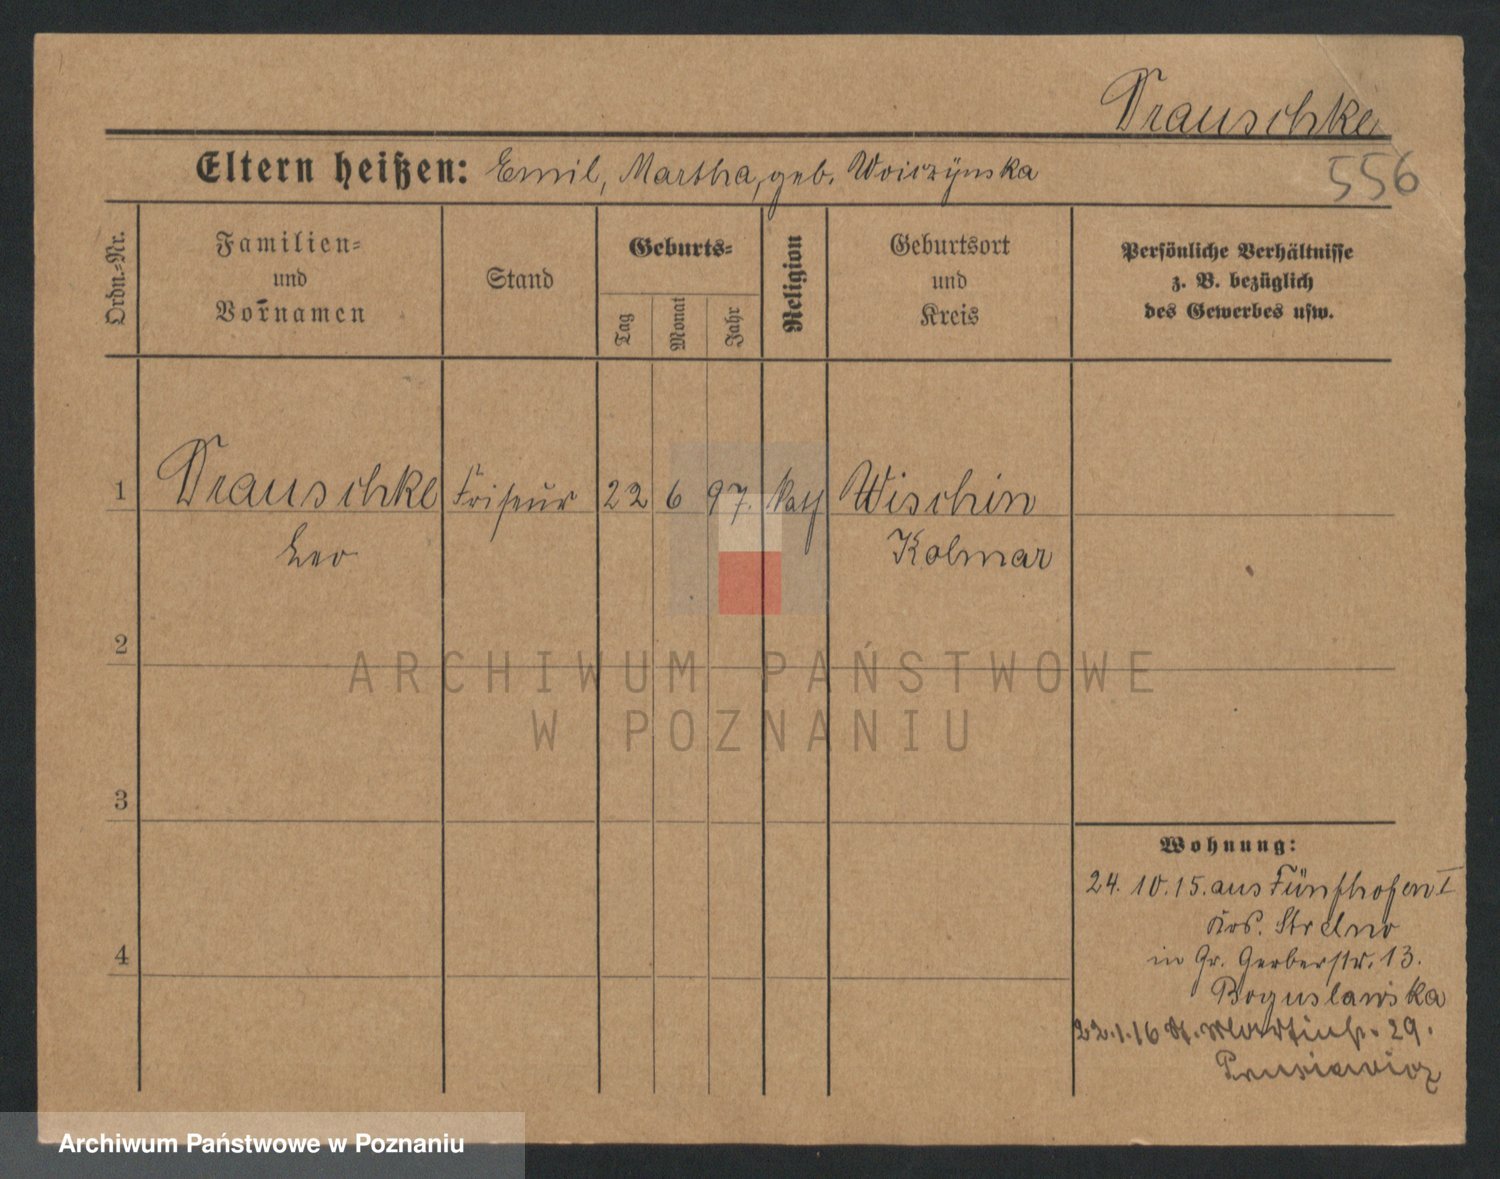 Drauschke
556
Eltern heißen: Emil, Martha, geb. Woiczÿnska
Ordn.-Nr.
Familien-
und
Vornamen
Stand
Geburts-
Tag
Monat
Jahr
Religion
Geburtsort
und
Kreis
Persönliche Verhältnisse
z. B. bezüglich
des Gewerbes usw.
1 Drauschke Friseur 22 6 97. kath Wischin
Leo Kolmar
2
3
4
Wohnung:
24. 10. 15. aus Fünfhofen I
Krs. Strelno
in Gr. Gerberstr. 13.
Boguslawska
22.1.16 St. Martinstr. 29.
ARCHIWUM PAŃSTWOWE
W POZNANIU
Archiwum Państwowe w Poznaniu